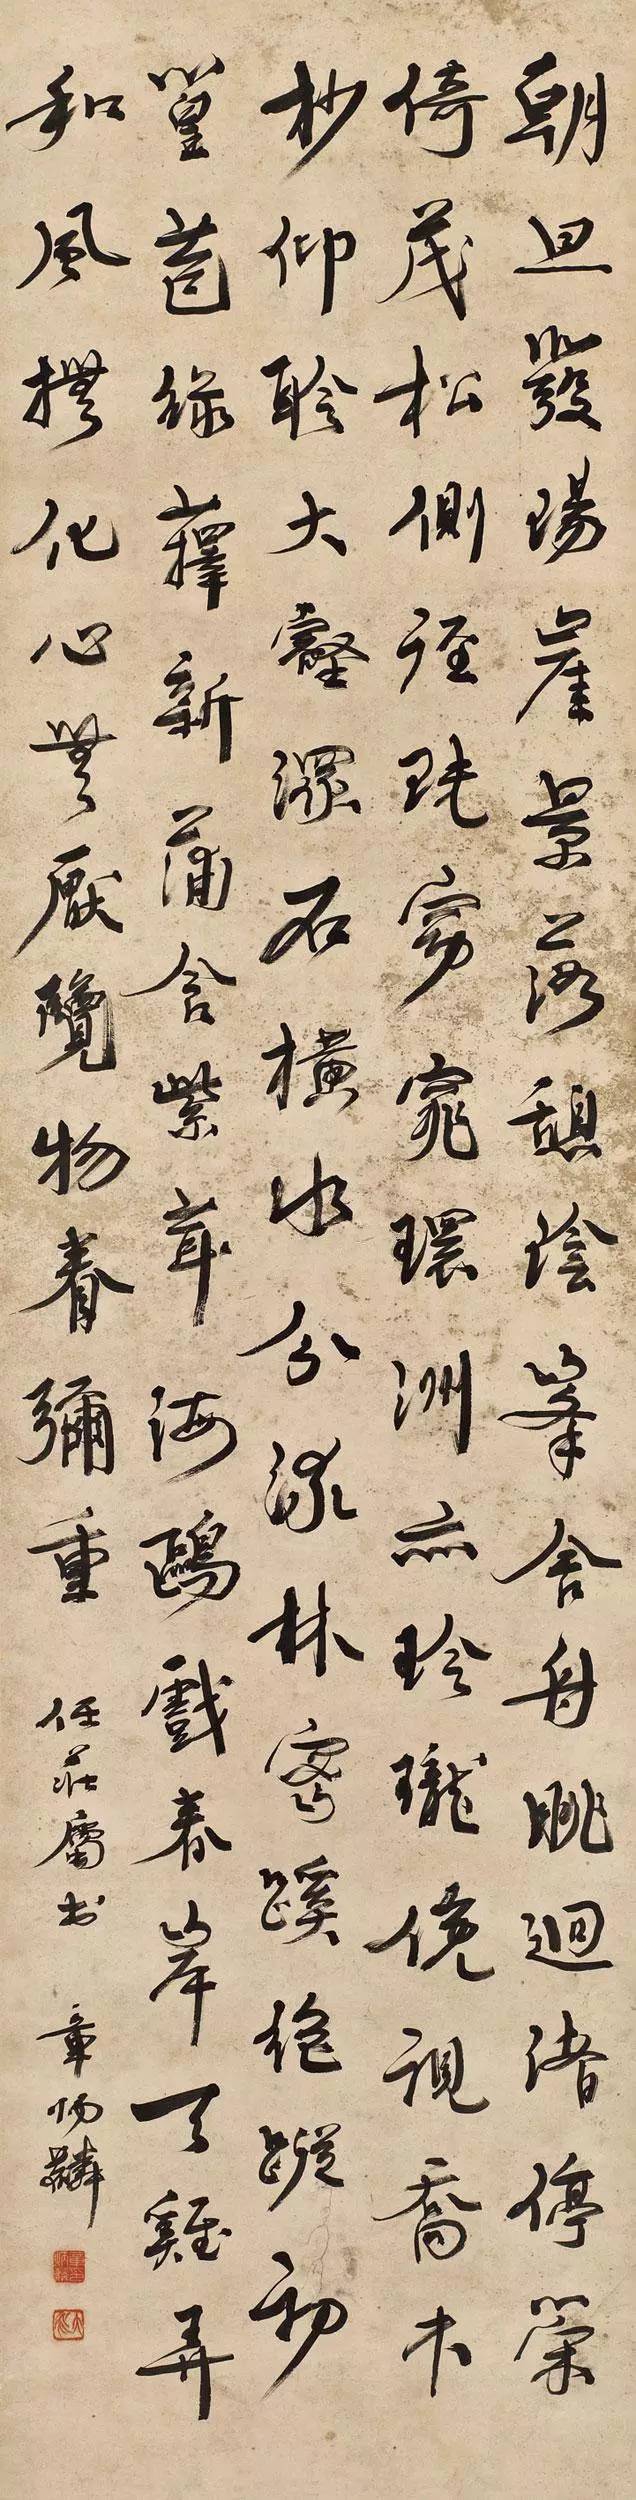 朝旦發陽崖景落憩陰峯舍舟眺迴渚停策
倚茂松側徑既窈窕環洲亦玲瓏俛視喬木
杪仰聆大壑灇石橫水分流林密蹊絕蹤初
篁苞綠籜新蒲含紫茸海鷗戲春岸天雞弄
和風撫化心無厭覽物眷彌重
任莊屬書 章炳麟